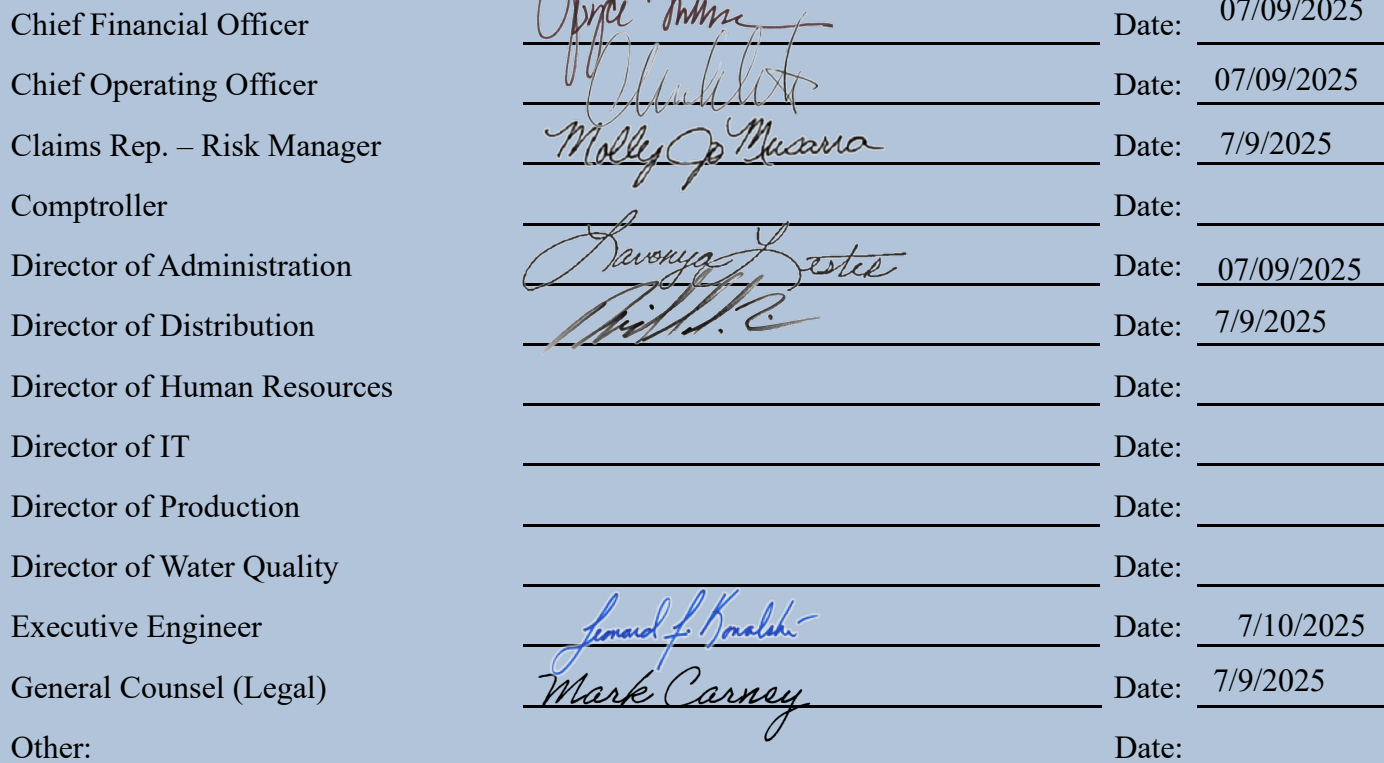 Chief Financial Officer Date: 07/09/2025
Chief Operating Officer Date: 07/09/2025
Claims Rep. – Risk Manager Molly Jo Musarra Date: 7/9/2025
Comptroller Date:
Director of Administration Lavonya Lester Date: 07/09/2025
Director of Distribution Date: 7/9/2025
Director of Human Resources Date:
Director of IT Date:
Director of Production Date:
Director of Water Quality Date:
Executive Engineer Leonard F. Kowalski Date: 7/10/2025
General Counsel (Legal) Mark Carney Date: 7/9/2025
Other: Date: